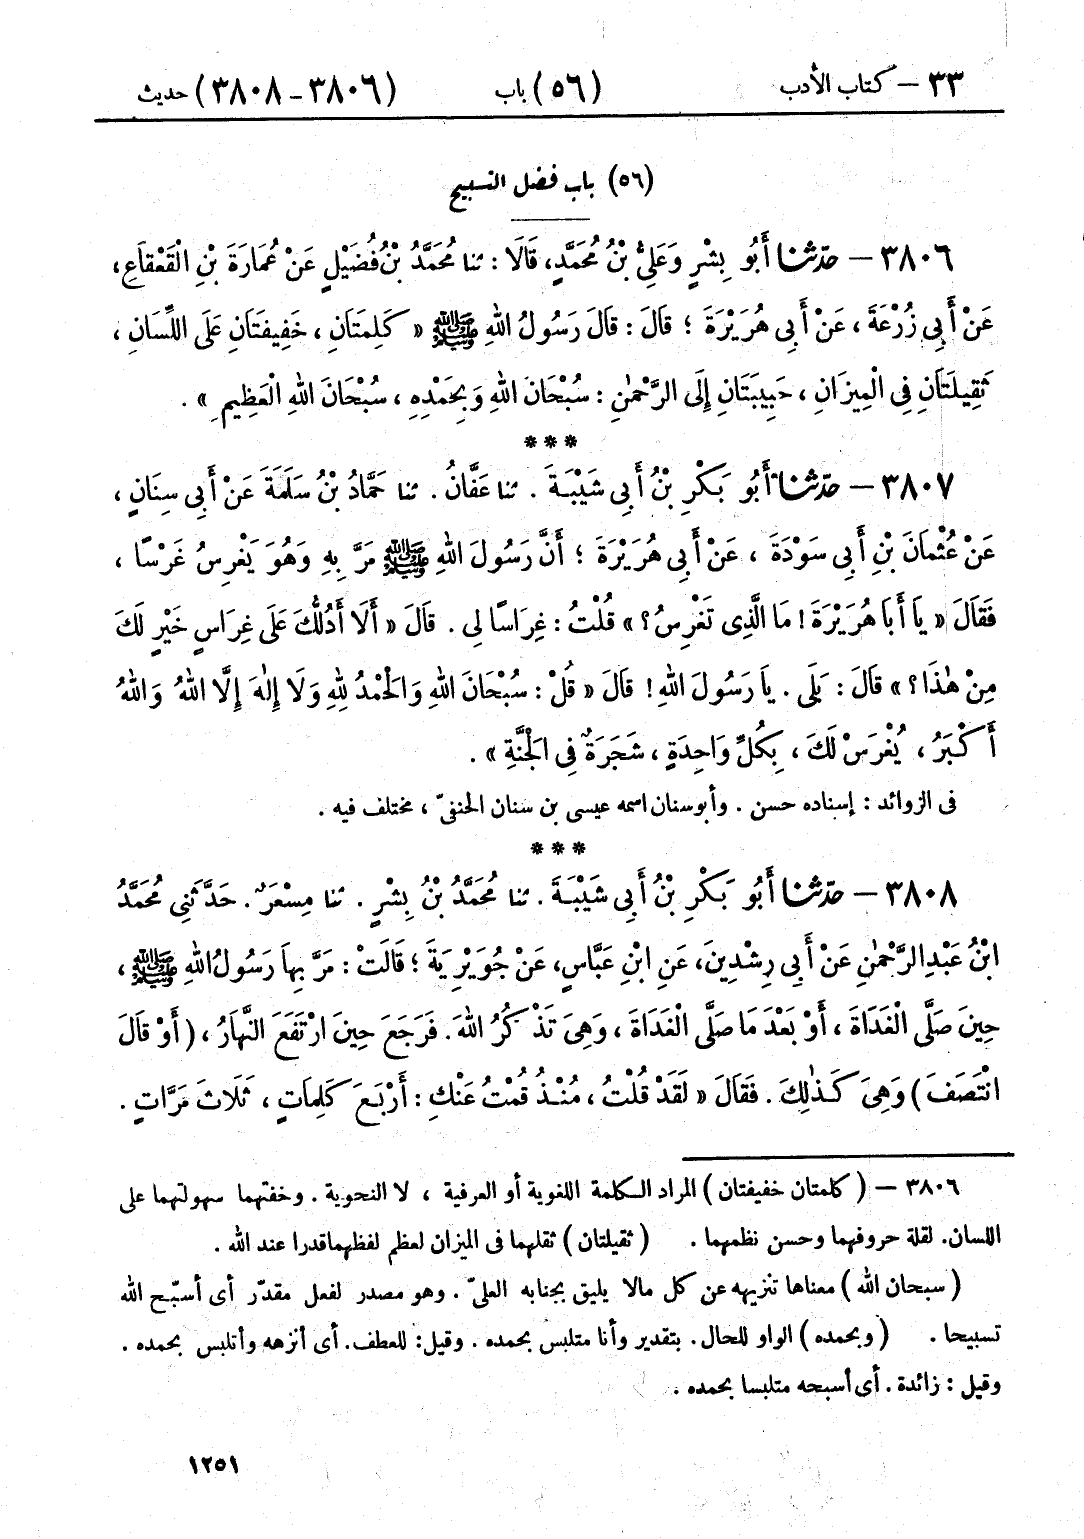 ٣٣ — كتاب الأدب (٥٦) باب (٣٨٠٦ - ٣٨٠٨) حديث
(٥٦) باب فضل التسبيح
٣٨٠٦ — حدّثنا أَبُو بِشْرٍ وَعَلِيُّ بْنُ مُحَمَّدٍ، قَالَا : ثنا مُحَمَّدُ بْنُ فُضَيْلٍ عَنْ عُمَارَةَ بْنِ الْقَعْقَاعِ،
عَنْ أَبِي زُرْعَةَ ، عَنْ أَبِي هُرَيْرَةَ ؛ قَالَ : قَالَ رَسُولُ اللهِ ﷺ « كَلِمَتَانِ ، خَفِيفَتَانِ عَلَى اللِّسَانِ ،
ثَقِيلَتَانِ فِي الْمِيزَانِ ، حَبِيبَتَانِ إِلَى الرَّحْمٰنِ : سُبْحَانَ اللهِ وَبِحَمْدِهِ ، سُبْحَانَ اللهِ الْعَظِيمِ » .
***
٣٨٠٧ — حدّثنا أَبُو بَكْرِ بْنُ أَبِي شَيْبَةَ . ثنا عَفَّانُ . ثنا حَمَّادُ بْنُ سَلَمَةَ عَنْ أَبِي سِنَانٍ ،
عَنْ عُثْمَانَ بْنِ أَبِي سَوْدَةَ ، عَنْ أَبِي هُرَيْرَةَ ؛ أَنَّ رَسُولَ اللهِ ﷺ مَرَّ بِهِ وَهُوَ يَغْرِسُ غَرْسًا ،
فَقَالَ « يَا أَبَا هُرَيْرَةَ ! مَا الَّذِي تَغْرِسُ ؟ » قُلْتُ : غِرَاسًا لِي . قَالَ « أَلَا أَدُلُّكَ عَلَى غِرَاسٍ خَيْرٍ لَكَ
مِنْ هٰذَا ؟ » قَالَ : بَلَى . يَا رَسُولَ اللهِ ! قَالَ « قُلْ : سُبْحَانَ اللهِ وَالْحَمْدُ لِلهِ وَلَا إِلٰهَ إِلَّا اللهُ وَاللهُ
أَكْبَرُ ، يُغْرَسْ لَكَ ، بِكُلِّ وَاحِدَةٍ ، شَجَرَةٌ فِي الْجَنَّةِ » .
فى الزوائد : إسناده حسن . وأبو سنان اسمه عيسى بن سنان الحنفىّ ، مختلف فيه .
***
٣٨٠٨ — حدّثنا أَبُو بَكْرِ بْنُ أَبِي شَيْبَةَ . ثنا مُحَمَّدُ بْنُ بِشْرٍ . ثنا مِسْعَرٌ . حَدَّثَنِي مُحَمَّدُ
ابْنُ عَبْدِ الرَّحْمٰنِ عَنْ أَبِي رِشْدِينَ، عَنِ ابْنِ عَبَّاسٍ، عَنْ جُوَيْرِيَةَ ؛ قَالَتْ : مَرَّ بِهَا رَسُولُ اللهِ ﷺ ،
حِينَ صَلَّى الْغَدَاةَ ، أَوْ بَعْدَ مَا صَلَّى الْغَدَاةَ ، وَهِيَ تَذْكُرُ اللهَ . فَرَجَعَ حِينَ ارْتَفَعَ النَّهَارُ ، ( أَوْ قَالَ
انْتَصَفَ ) وَهِيَ كَذٰلِكَ . فَقَالَ « لَقَدْ قُلْتُ ، مُنْذُ قُمْتُ عَنْكِ : أَرْبَعَ كَلِمَاتٍ ، ثَلَاثَ مَرَّاتٍ .
٣٨٠٦ — ( كلمتان خفيفتان ) المراد الكلمة اللغوية أو العرفية ، لا النحوية . وخفتهما سهولتهما على
اللسان. لقلة حروفهما وحسن نظمهما . ( ثقيلتان ) ثقلهما فى الميزان لعظم لفظهما قدرا عند الله .
( سبحان الله ) معناها تنزيهه عن كل مالا يليق بجنابه العلىّ . وهو مصدر لفعل مقدّر أى أسبّح الله
تسبيحا . ( وبحمده ) الواو للحال. بتقدير وأنا متلبس بحمده . وقيل : للعطف. أى أنزهه وأتلبس بحمده .
وقيل : زائدة . أى أسبحه متلبسا بحمده .
١٢٥١